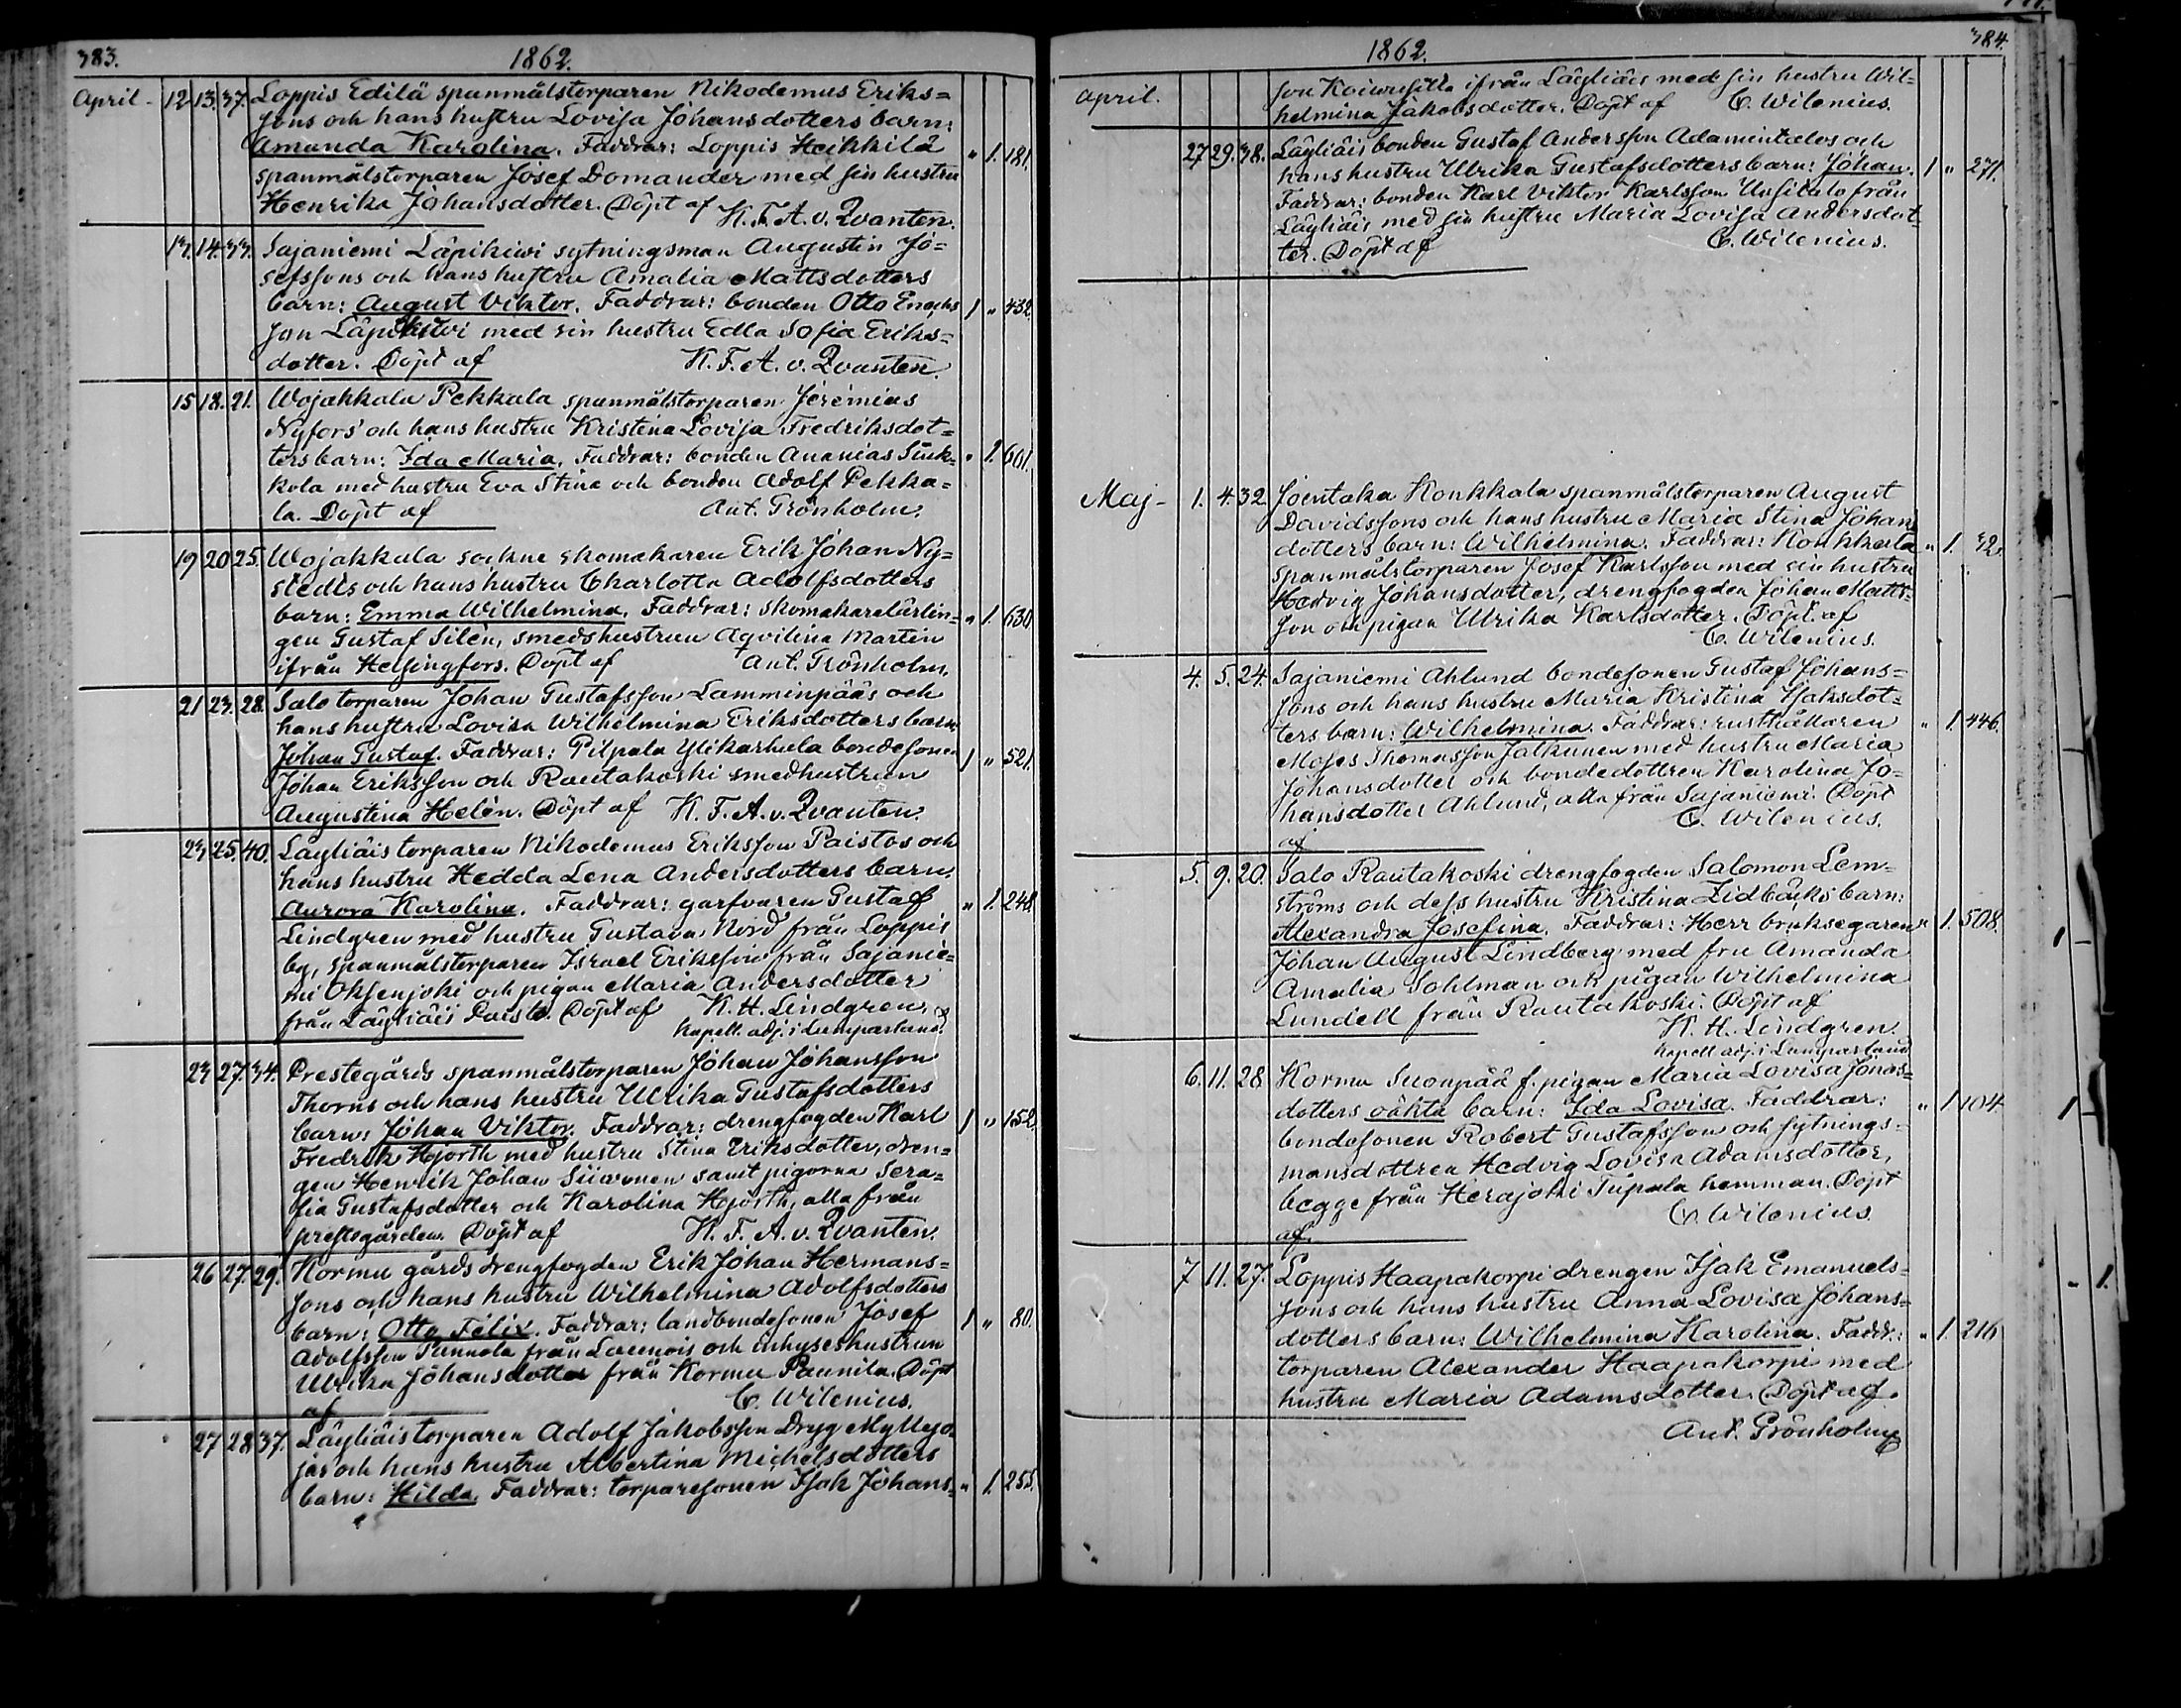 383.
1862.
April - 12 13. 37. Loppis Edilä spanmålstorparen Nikodemus Eriks=
sons och hans hustru Lovisa Johansdotters barn:
Amanda Karolina. Faddrar: Loppis Heikkilä " 1. 181.
spanmålstorparen Josef Domander med sin hustru
Henrika Johansdotter. Döpt af K. F. A. v. Qvanten.
13. 14. 33. Sajaniemi Läpikiwi sytningsman Augustin Jo=
sefssons och hans hustru Amalia Mattsdotters
barn: August Viktor. Faddrar: bonden Otto Enochs 1 " 432.
son Läpikiwi med sin hustru Edla Sofia Eriks=
dotter. Döpt af K. F. A. v. Qvanten.
15 18. 21. Wojakkala Pekkala spanmålstorparen Jeremias
Nyfors' och hans hustru Kristina Lovisa Fredriksdot=
ters barn: Ida Maria. Faddrar: bonden Ananias Sink= " 1. 601.
kola med hustru Eva Stina och bonden Adolf Pekka=
la. Döpt af Ant. Grönholm.
19 20 25. Wojakkala sockne skomakaren Erik Johan Ny=
stedts och hans hustru Charlotta Adolfsdotters
barn: Emma Wilhelmina. Faddrar: skomakarelärlin= " 1. 630.
gen Gustaf Silèn, smedshustrun Aqvilina Martin
ifrån Helsingfors. Döpt af Ant. Grönholm.
21 23. 28. Salo torparen Johan Gustafsson Lamminpääs och
hans hustru Lovisa Wilhelmina Eriksdotters barn:
Johan Gustaf. Faddrar: Pilpala Ylikarhula bondesonen 1 " 521.
Johan Eriksson och Rautakoski smedhustrun
Augustina Helén. Döpt af K. F. A. v. Qvanten.
23 25. 40. Läyliäis torparen Nikodemus Eriksson Paistos och
hans hustru Hedda Lena Andersdotters barn:
Aurora Karolina. Faddrar: garfvaren Gustaf " 1. 248.
Lindgren med hustru Gustava Nord från Loppis
by, spanmålstorparen Israel Eriksson från Sajanie=
mi Oksenjoki och pigan Maria Andersdotter
från Läyliäis Paisto. Döpt af K. H. Lindgren,
kapell. adj. i Lumparland.
23 27. 34. Prestegårds spanmålstorparen Johan Johansson
Thorns och hans hustru Ulrika Gustafsdotters
barn: Johan Viktor. Faddrar: drengfogden Karl 1 " 152.
Fredrik Hjorth med hustru Stina Eriksdotter, dren=
gen Henrik Johan Siivonen samt pigorna Sera=
fia Gustafsdotter och Karolina Hjorth, alla från
prestegården. Döpt af K. F. A. v. Qvanten.
26 27. 29. Kormu gårds drengfogden Erik Johan Hermans=
sons och hans hustru Wilhelmina Adolfsdotters
barn: Otto Felix. Faddrar: landbondesonen Josef 1 " 80.
Adolfsson Pannola från Launois och inhyseshustrun
Ulrika Johansdotter från Kormu Paunila. Döpt
af C. Wilenius.
27 28 37. Läyliäis torparen Adolf Jakobsson Dryg Myllyjo=
jas och hans hustru Albertina Michelsdotters
barn: Hilda. Faddrar: torparesonen Isak Johans= " 1. 255.
384.
1862.
April. son Koiwusilta ifrån Läyliäis med sin hustru Wil=
helmina Jakobsdotter. Döpt af C. Wilenius.
27 29. 38. Läyliäis bonden Gustaf Andersson Adamintalos och
hans hustru Ulrika Gustafsdotters barn: Johan. 1 " 271.
Faddrar: bonden Karl Viktor Karlsson Uusitalo från
Läyliäis med sin hustru Maria Lovisa Andersdot=
ter. Döpt af C. Wilenius.
Maj - 1. 4. 32 Joentaka Konkkala spanmålstorparen August
Davidssons och hans hustru Maria Stina Johans
dotters barn: Wilhelmina. Faddrar: Konkkala " 1. 32.
spanmålstorparen Josef Karlsson med sin hustru
Hedvig Johansdotter, drengfogden Johan Matts=
son och pigan Ulrika Karlsdotter. Döpt af
C. Wilenius.
4. 5. 24. Sajaniemi Ahlund bondesonen Gustaf Johans=
sons och hans hustru Maria Kristina Isaksdot=
ters barn: Wilhelmina. Faddrar: rusthållaren " 1 446.
Moses Thomasson Jatkunen med hustru Maria
Johansdotter och bondedottren Karolina Jo=
hansdotter Ahlund, alla från Sajaniemi. Döpt
af C. Wilenius.
5. 9. 20. Salo Rautakoski drengfogden Salomon Lem=
ströms och dess hustru Kristina Lidbäcks barn:
Alexandra Josefina. Faddrar: Herr bruksegaren " 1. 508.
Johan August Lindberg med fru Amanda
Amalia Sohlman och pigan Wilhelmina
Lundell från Rautakoski. Döpt af
K. H. Lindgren.
kapell adj. i Lumparland
6. 11. 28 Kormu Suonpää f. pigan Maria Lovisa Jonas=
dotters oäkta barn: Ida Lovisa. Faddrar: " 1 104
bondesonen Robert Gustafsson och sytnings=
mansdottren Hedvig Lovisa Adamsdotter,
begge från Herajoki Tupala hemman. Döpt
af. C. Wilenius.
7 11. 27. Loppis Haapakorpi drengen Isak Emanuels=
sons och hans hustru Anna Lovisa Johans=
dotters barn: Wilhelmina Karolina. Faddr.: " 1. 216
torparen Alexander Haapakorpi med
hustru Maria Adamsdotter. Döpt af.
Ant. Grönholm